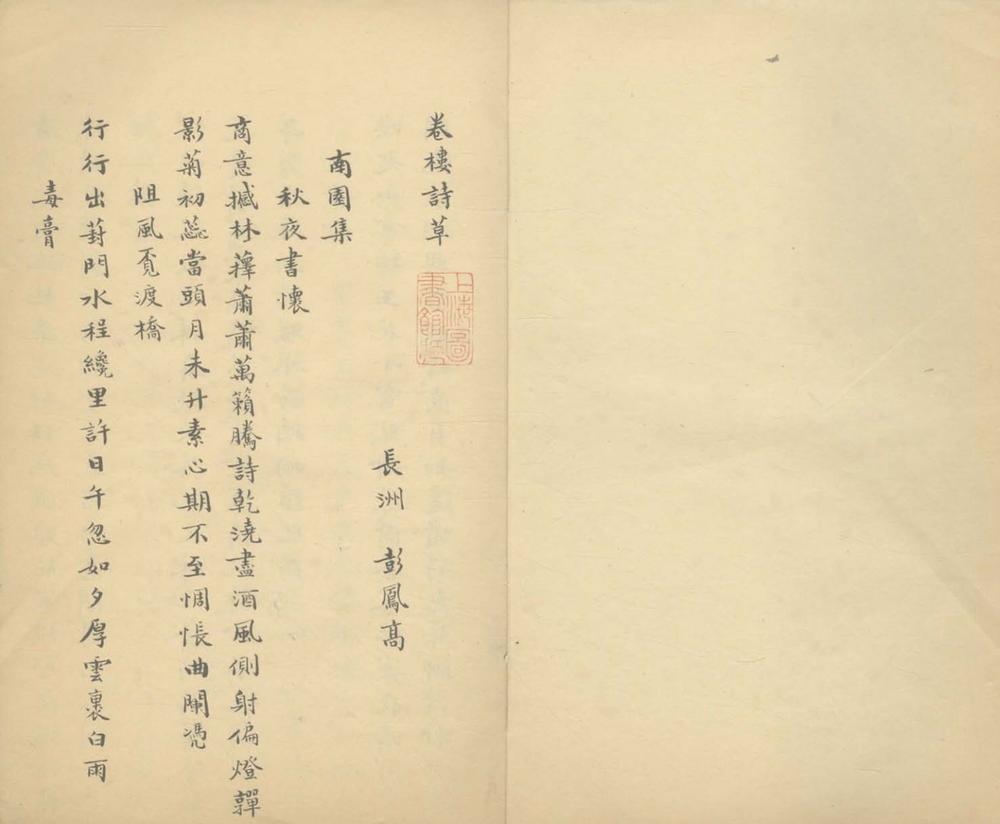 卷樓詩草
上海圖書館藏
長洲 彭鳳高
南園集
秋夜書懷
商意撼林蘀蕭蕭萬籟騰詩乾澆盡酒風側射偏燈嚲
影菊初蕊當頭月未升素心期不至惆悵曲闌凴
阻風覓渡橋
行行出葑門水程纔里許日午忽如夕厚雲裹白雨
毒膏